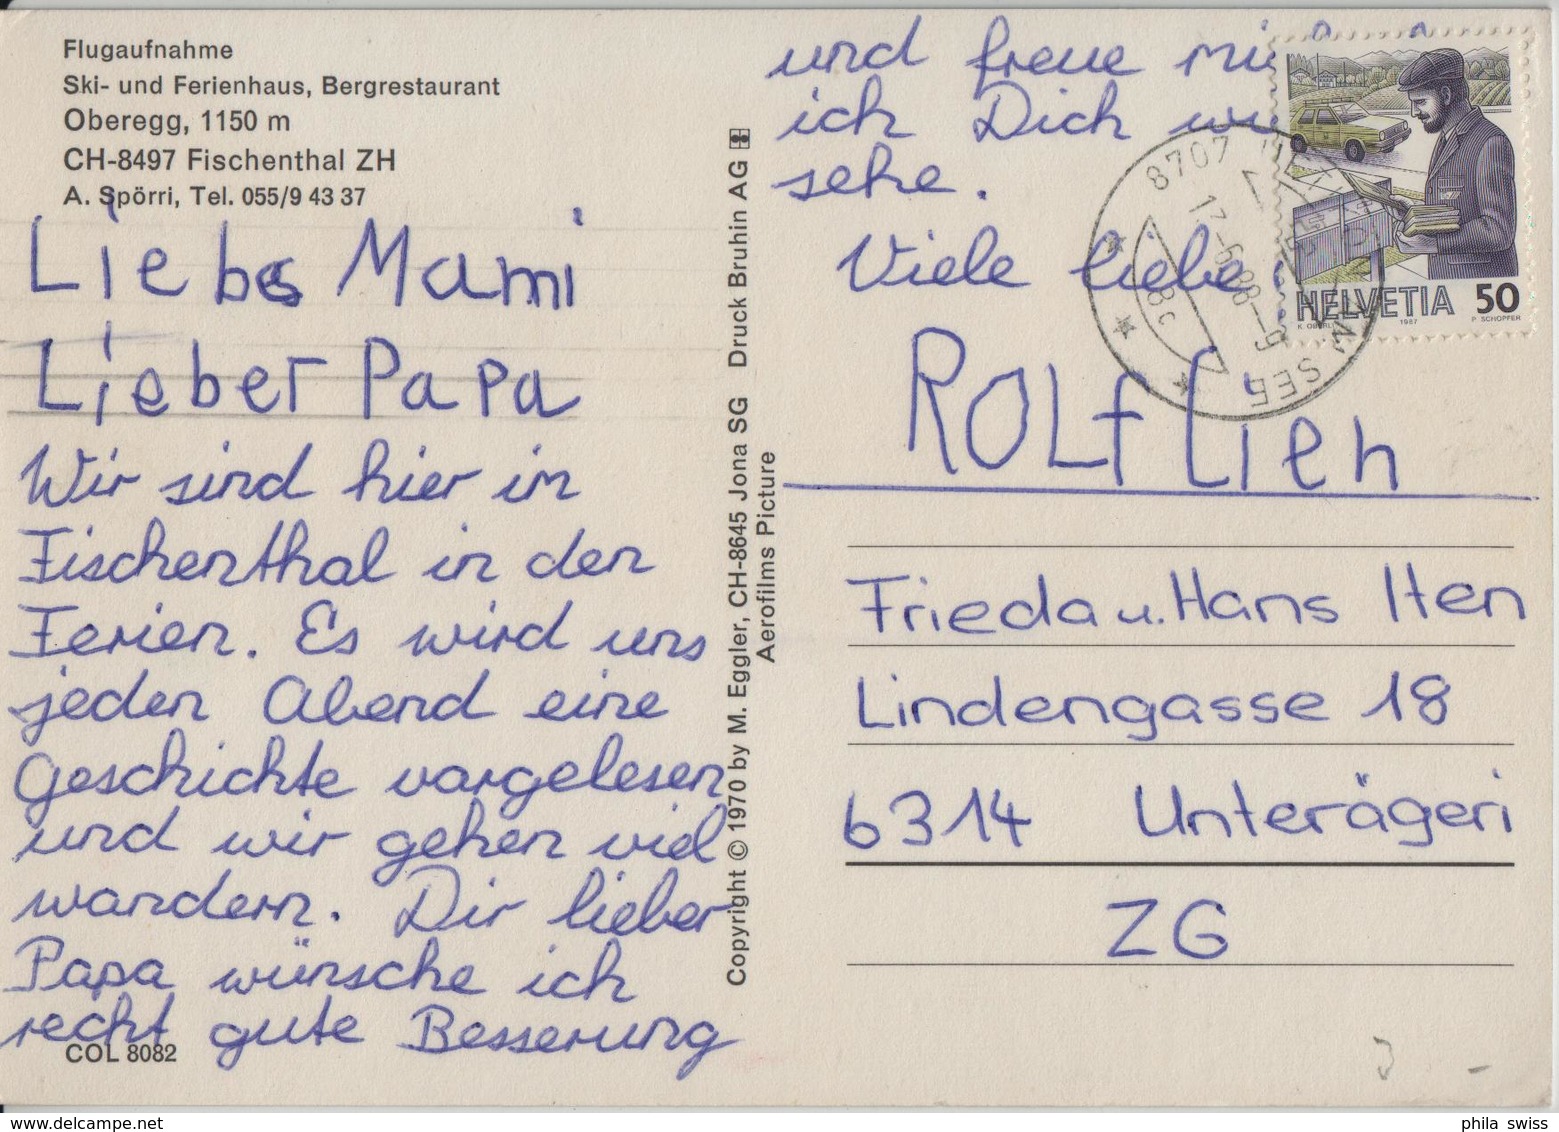 Flugaufnahme
Ski- und Ferienhaus, Bergrestaurant
Oberegg, 1150 m
CH-8497 Fischenthal ZH
A. Spörri, Tel. 055/9 43 37
Liebes Mami
Lieber Papa
Wir sind hier in
Fischenthal in den
Ferien. Es wird uns
jeden Abend eine
Geschichte vorgelesen
und wir gehen viel
wandern. Dir lieber
Papa wünsche ich
recht gute Besserung
COL 8082
Copyright © 1970 by M. Eggler, CH-8645 Jona SG Druck Bruhin AG
Aerofilms Picture
und freue
ich Dich
sehe.
Viele liebe
ROLf
8707
SEE
HELVETIA 50
K. OBERLI 1987 P. SCHOPFER
Frieda u. Hans Iten
Lindengasse 18
6314 Unterägeri
ZG
phila swiss